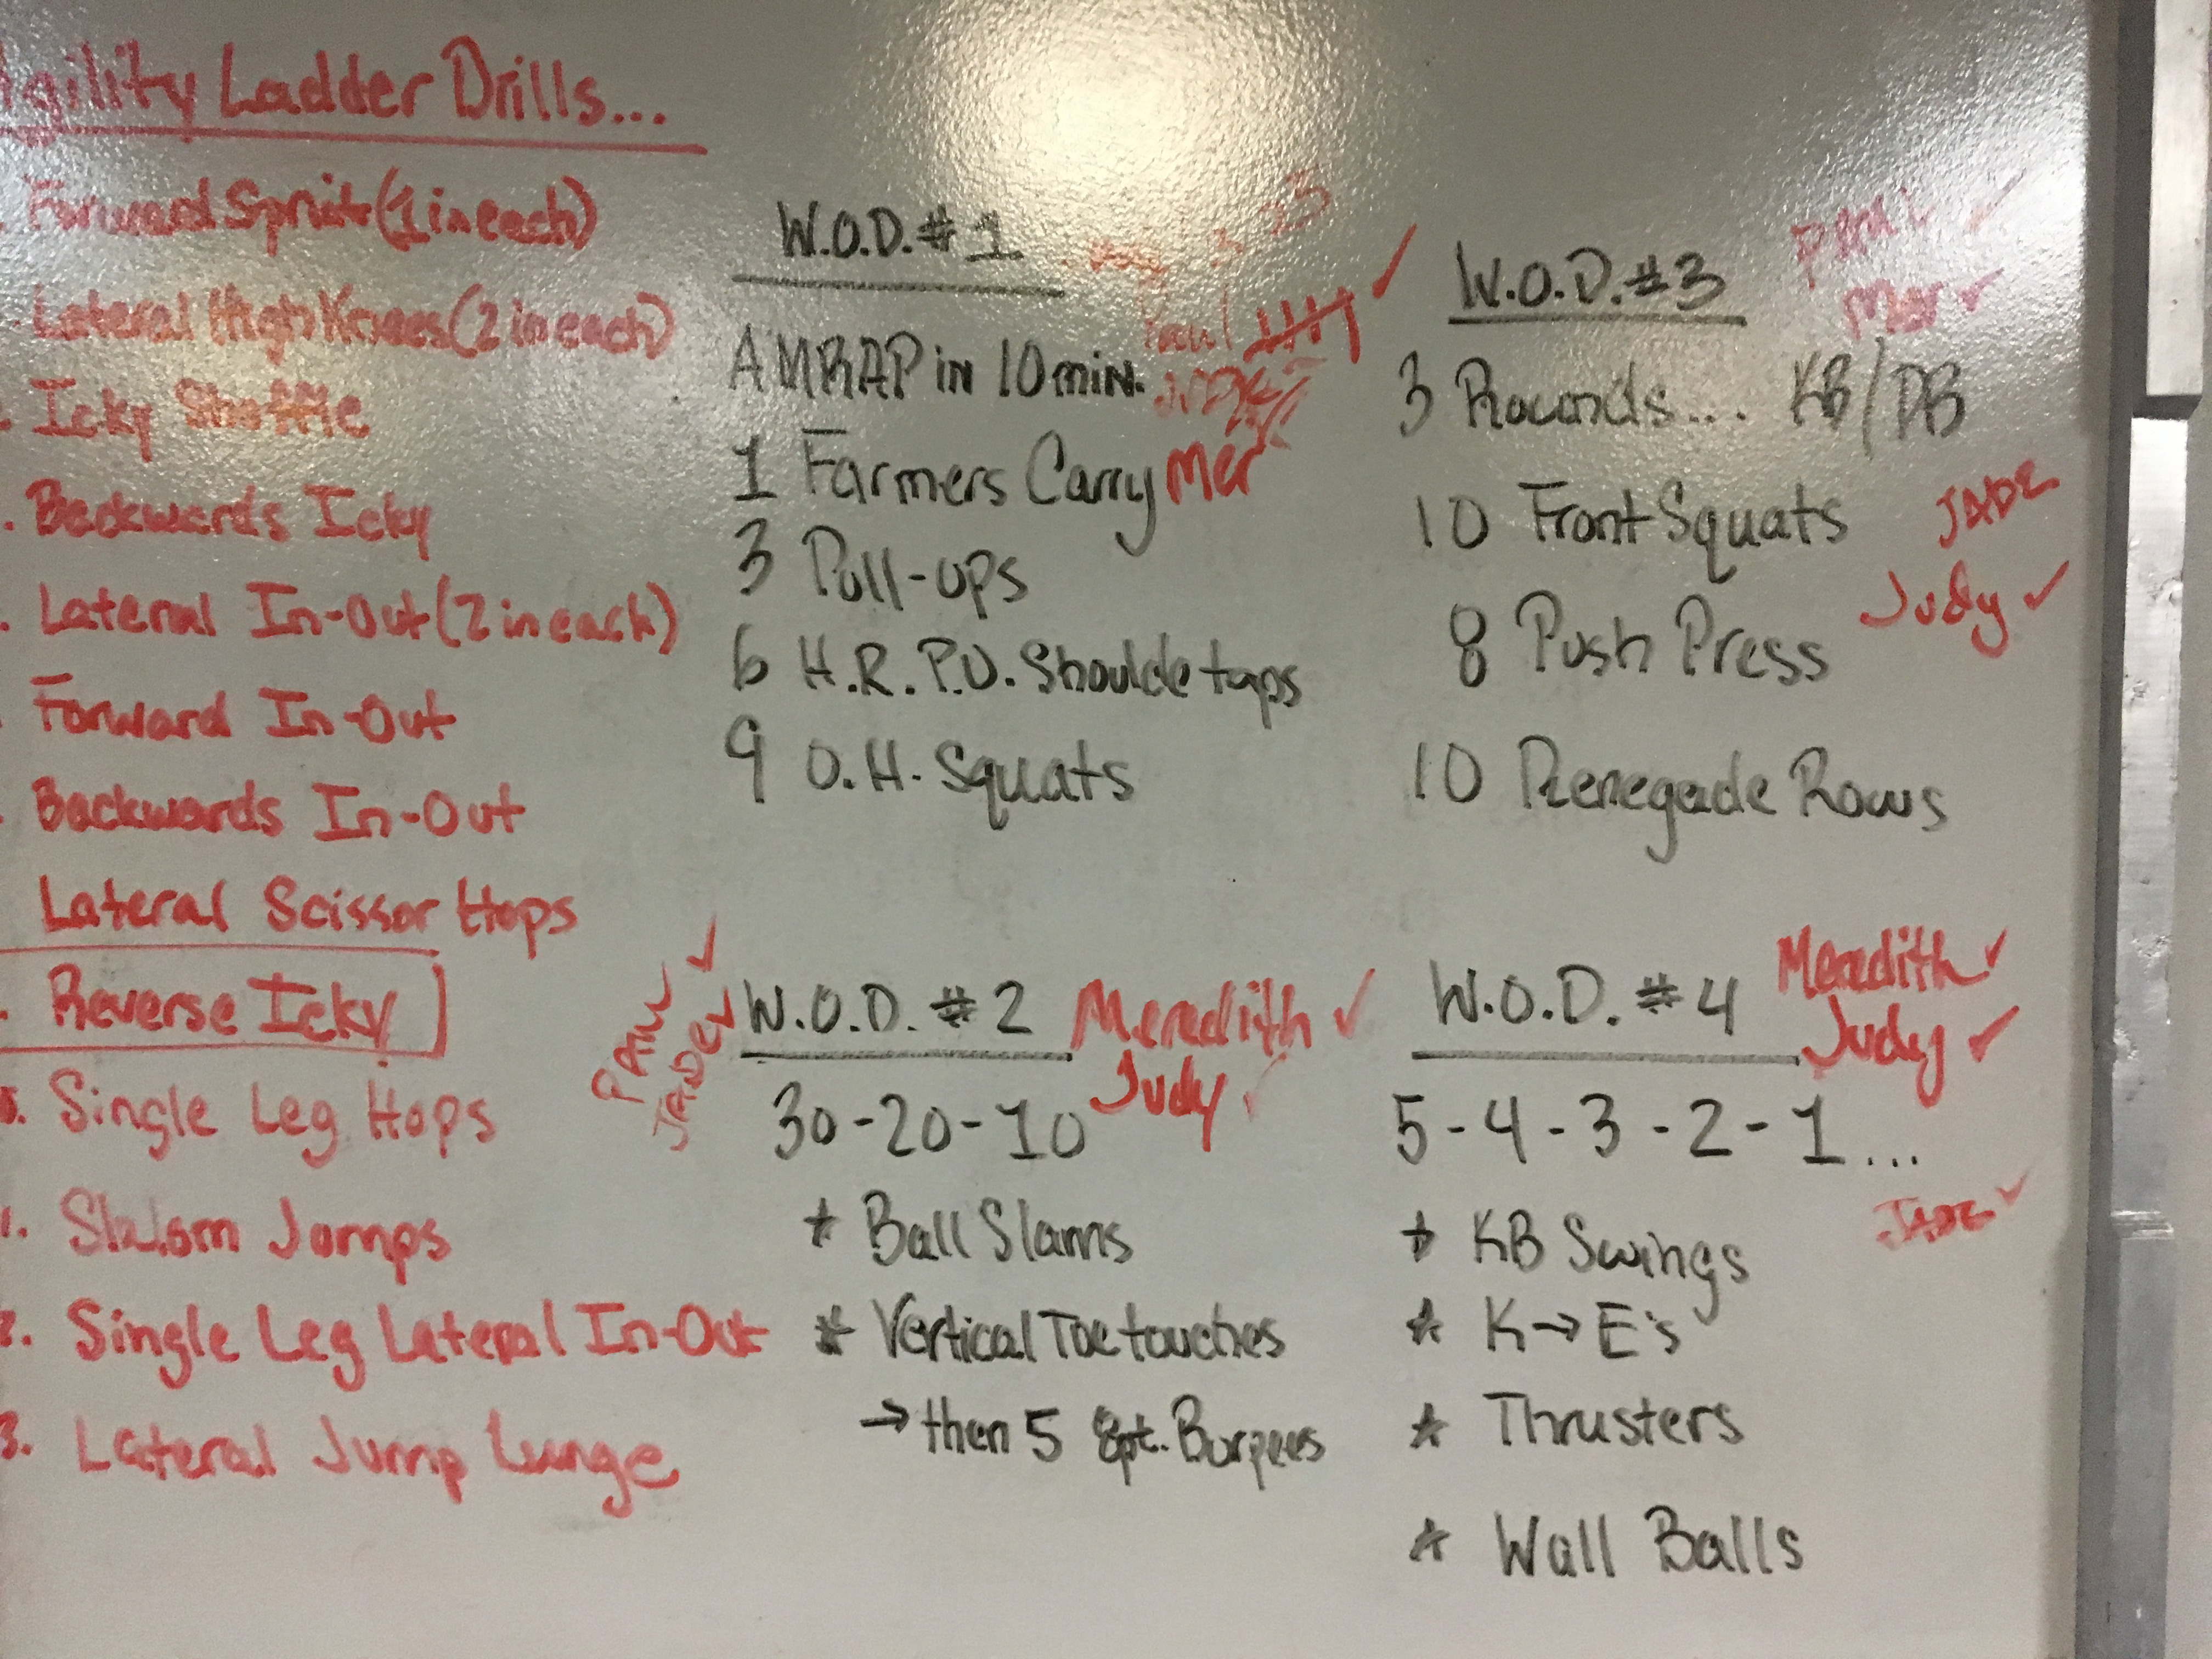 gility Ladder Drills...
Forward Sprint (1 in each)
Lateral High Knees (2 in each)
Icky Shuffle
. Backwards Icky
. Lateral In-Out (2 in each)
Forward In-Out
Backwards In-Out
Lateral Scissor Hops
. Reverse Icky
0. Single Leg Hops
1. Slalom Jumps
2. Single Leg Lateral In-Out
3. Lateral Jump Lunge
W.O.D. #1
Paul ✓
AMRAP in 10 min.
JADE
1 Farmers Carry Mer
3 Pull-ups
6 H.R.P.U. Shoulde taps
9 O.H. Squats
PAUL ✓
JADE ✓
W.O.D. #2 Meredith ✓
Judy ✓
30-20-10
* Ball Slams
* Vertical Toe touches
→ then 5 8pt. Burpees
W.O.D. #3
PAUL ✓
Mer ✓
3 Rounds.... KB/DB
JADE
10 Front Squats
Judy ✓
8 Push Press
10 Renegade Rows
W.O.D. #4 Meredith ✓
Judy ✓
5-4-3-2-1...
JADE ✓
* KB Swings
* K→E's
* Thrusters
* Wall Balls